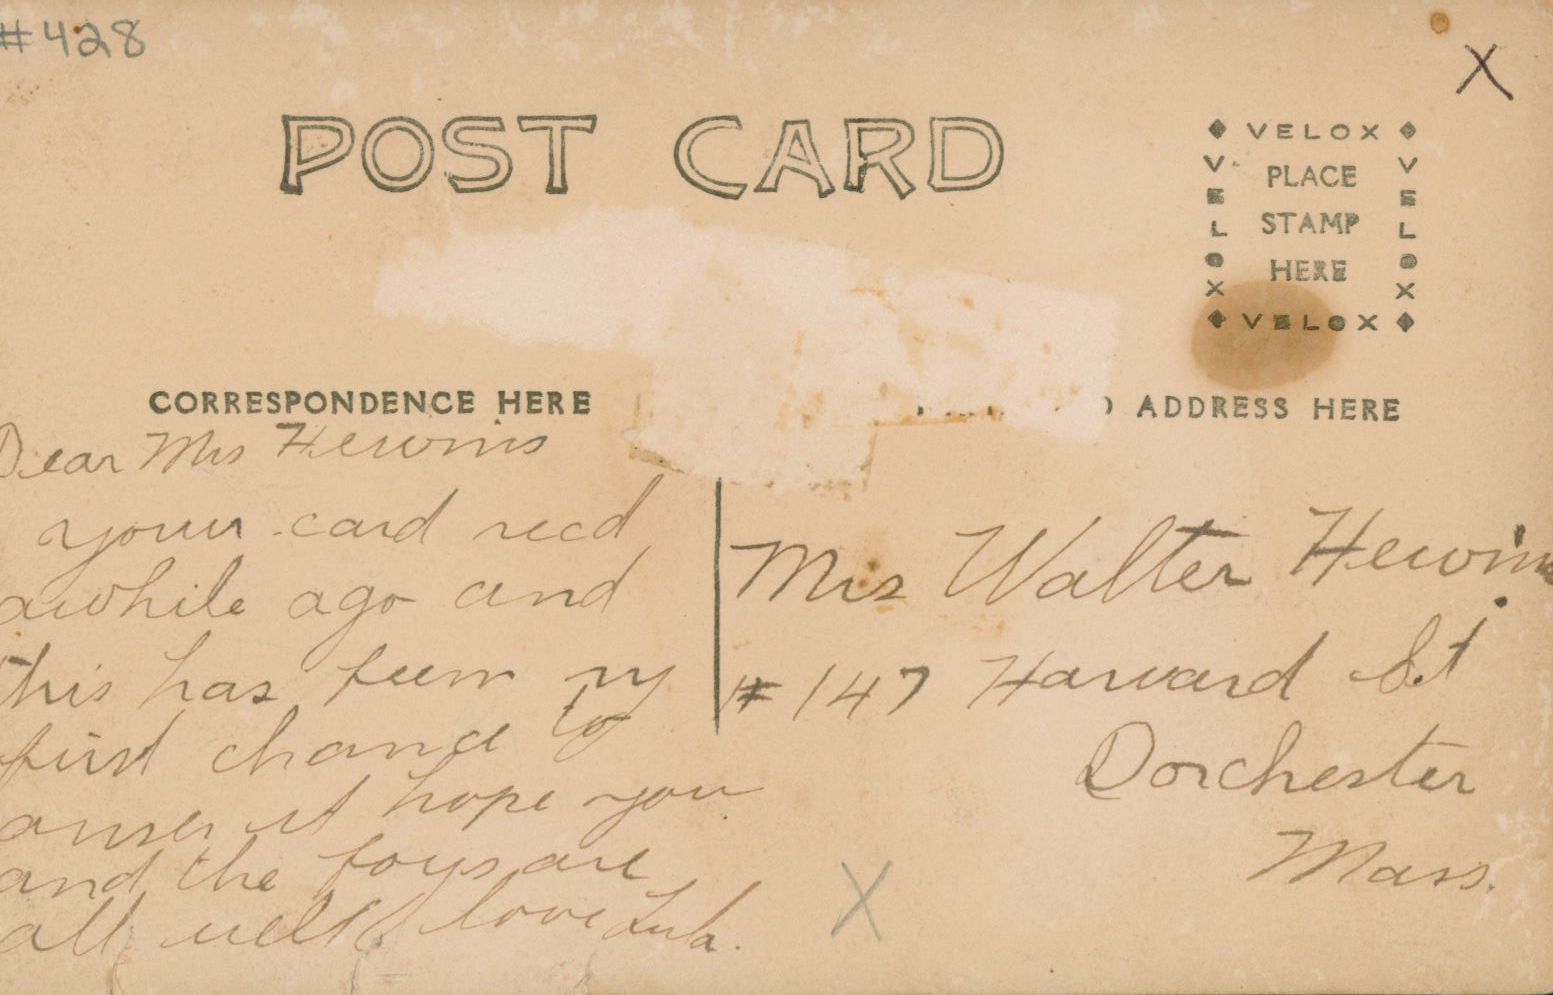 #428
X
POST CARD
VELOX
VELOX
PLACE
STAMP
HERE
VELOX
VELOX
CORRESPONDENCE HERE
ADDRESS HERE
Dear Mrs Hewins
your card recd
awhile ago and
this has been my
first chance to
anser it hope you
and the boys are
all well love Lula.
Mrs Walter Hewins
#147 Harvard St.
Dorchester
Mass.
X